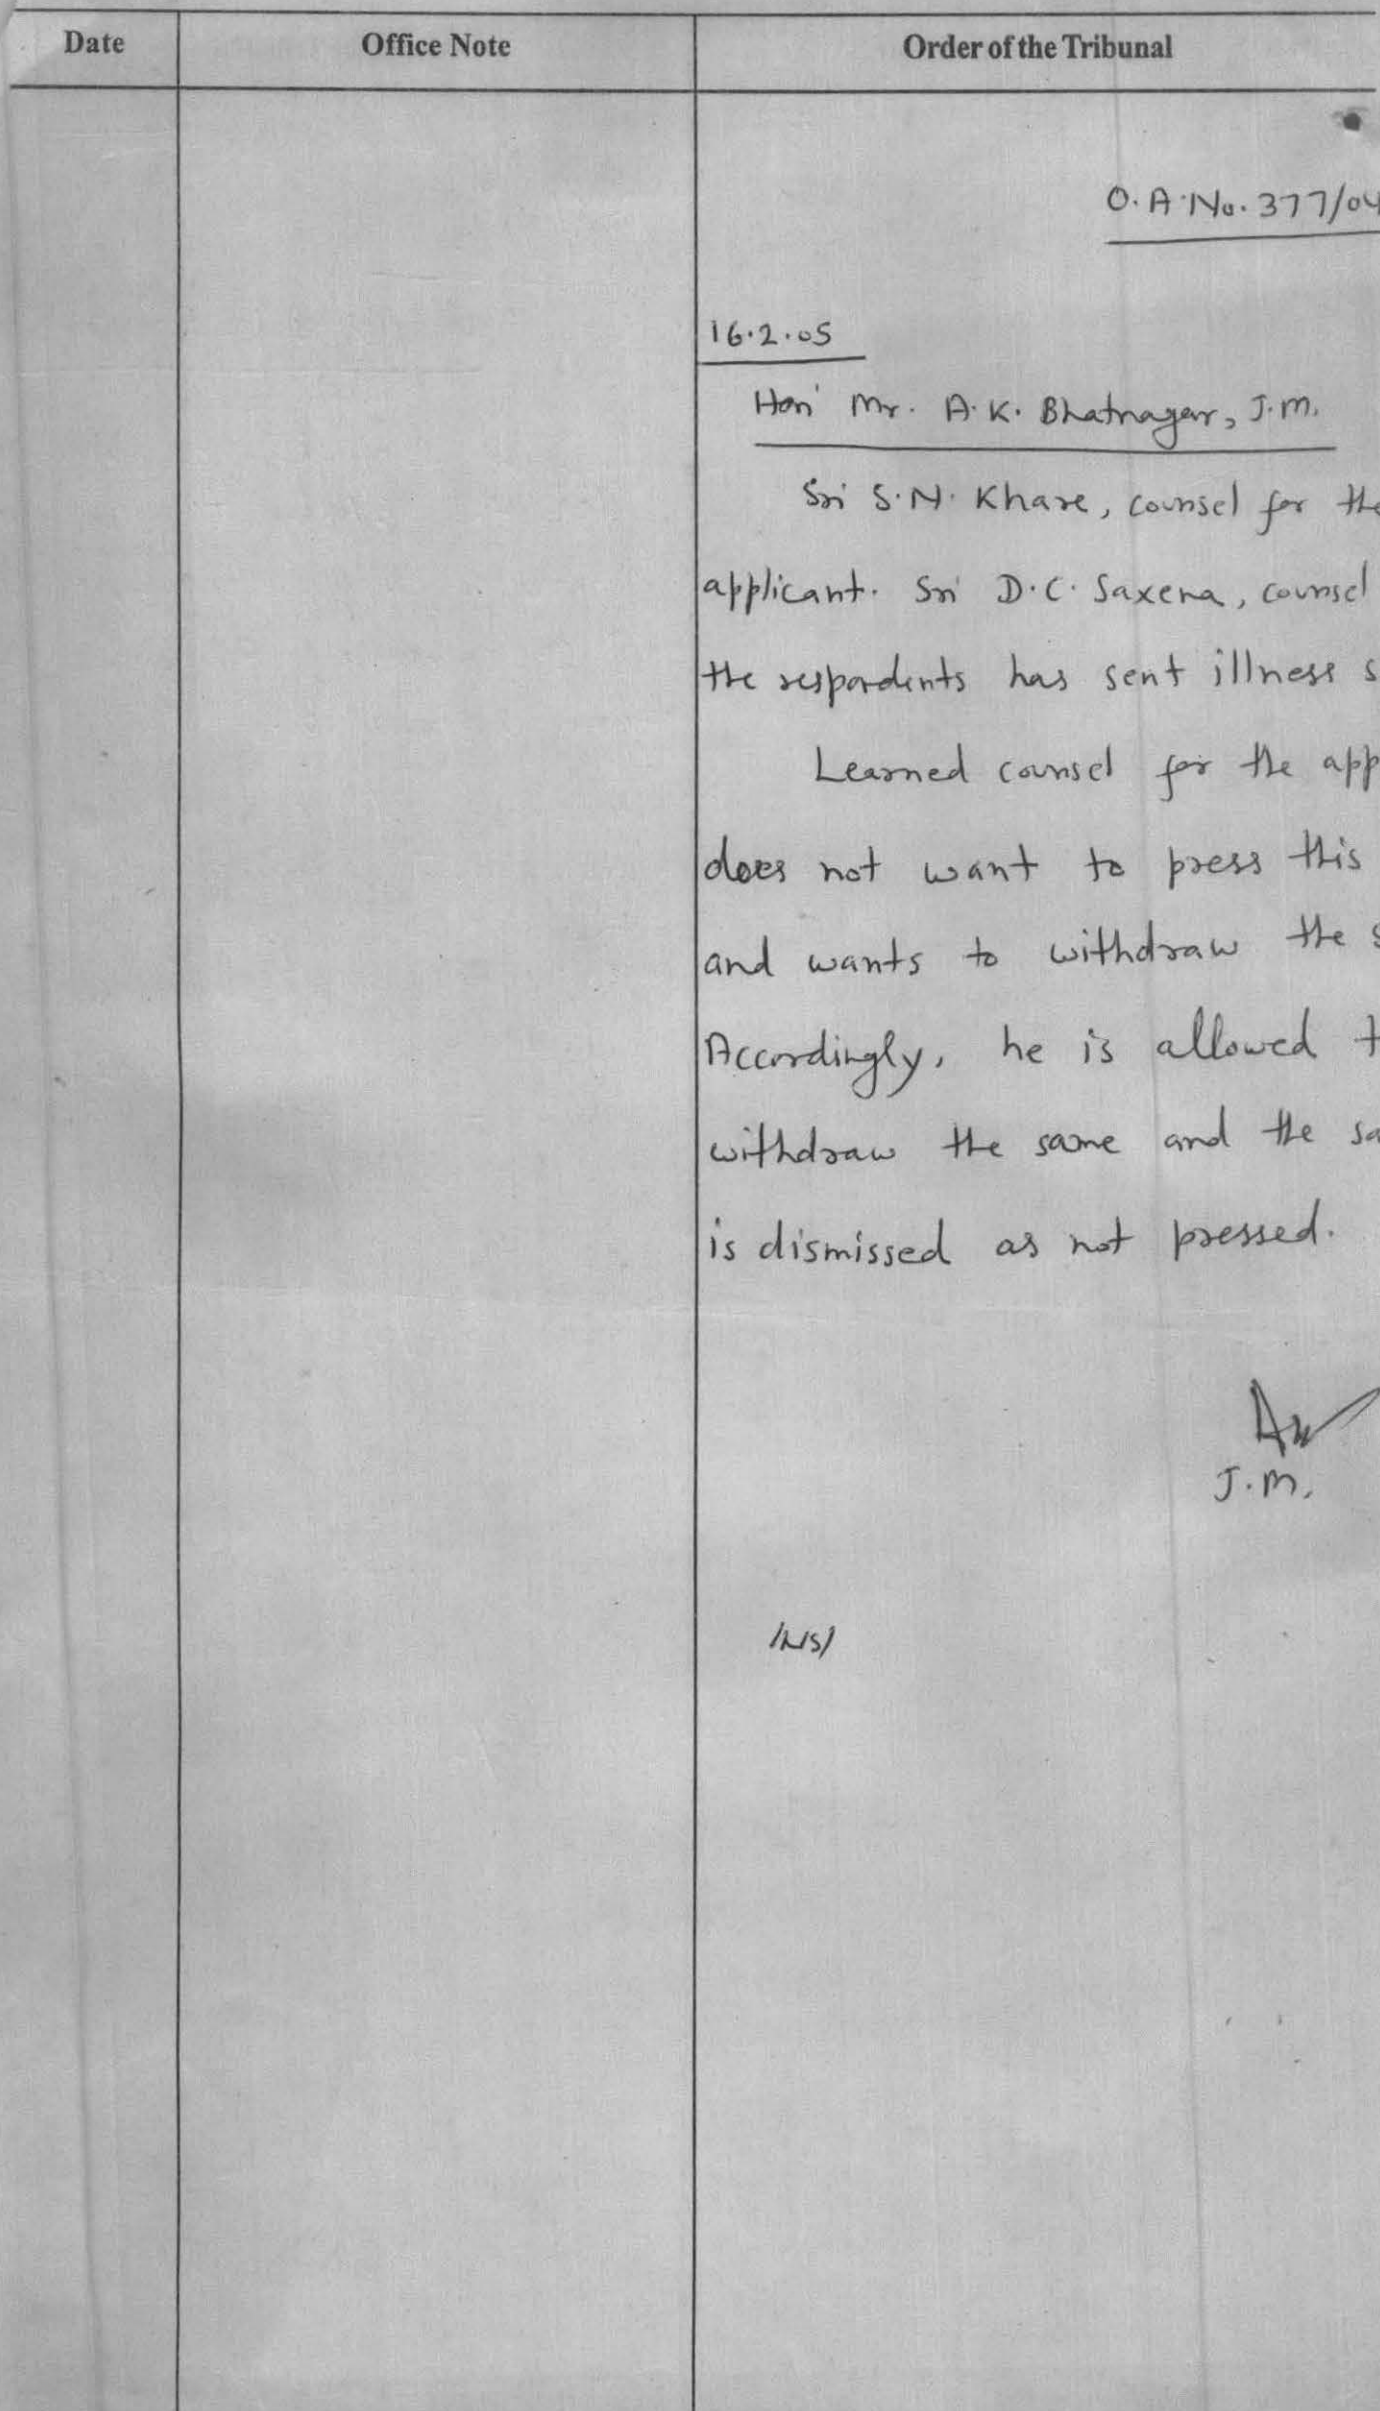 Date Office Note Order of the Tribunal
O.A.No. 377/04
16.2.05
Hon' Mr. A.K. Bhatnagar, J.M.
Sri S.N. Khare, counsel for the
applicant. Sri D.C. Saxena, counsel
the respondents has sent illness s
Learned counsel for the app
does not want to press this
and wants to withdraw the s
Accordingly, he is allowed t
withdraw the same and the sa
is dismissed as not pressed.
J.M.